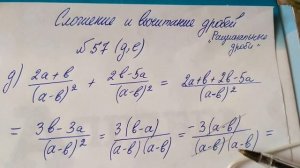 Сложение и вычитание дробей
"Рациональные дроби"
№57 (д,е)
д) (2a+b)/(a-b)² + (2b-5a)/(a-b)² = (2a+b+2b-5a)/(a-b)²
= (3b-3a)/(a-b)² = 3(b-a)/((a-b)(a-b)) = -3(a-b)/((a-b)(a-b)) =